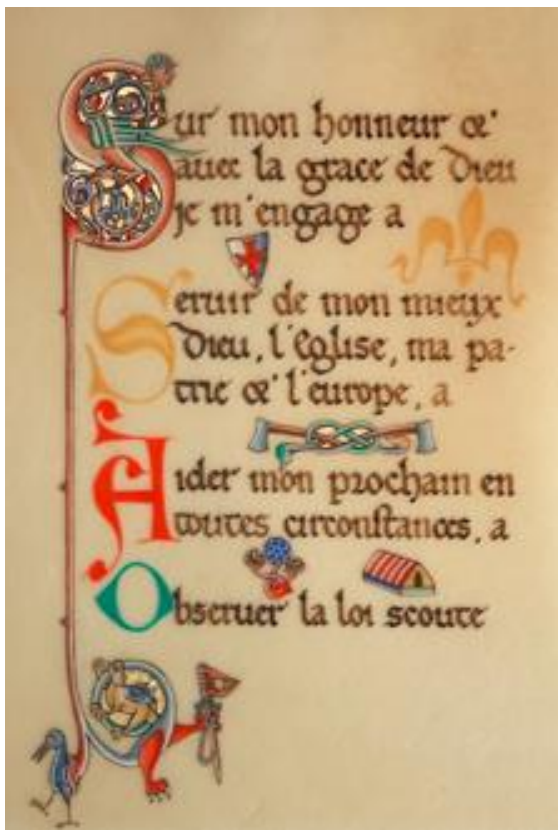 Sur mon honneur &
avec la grace de Dieu
je m'engage a
Servir de mon mieux
Dieu, l'Eglise, ma pa-
trie & l'europe, a
Aider mon prochain en
toutes circonstances, a
Observer la loi scoute